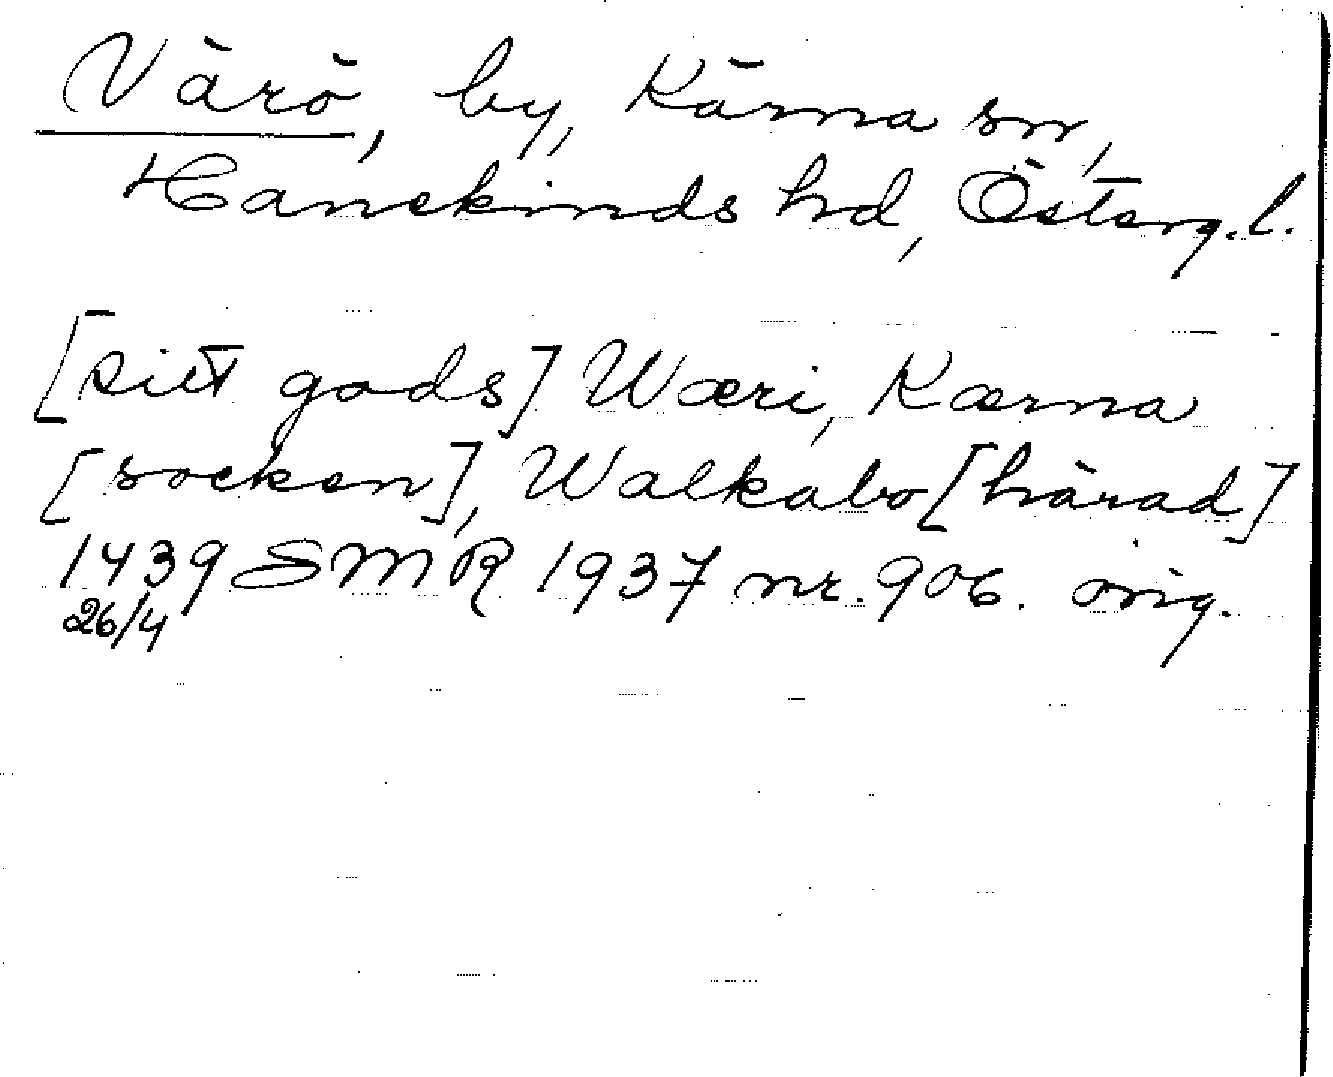 Värö, by, Kärna sn,
Hanekinds hd, Österg.l.
[sitt gods] Wæri, Kærna
[socken], Walkabo [härad]
1439 SMR 1937 nr. 906. orig.
26/4